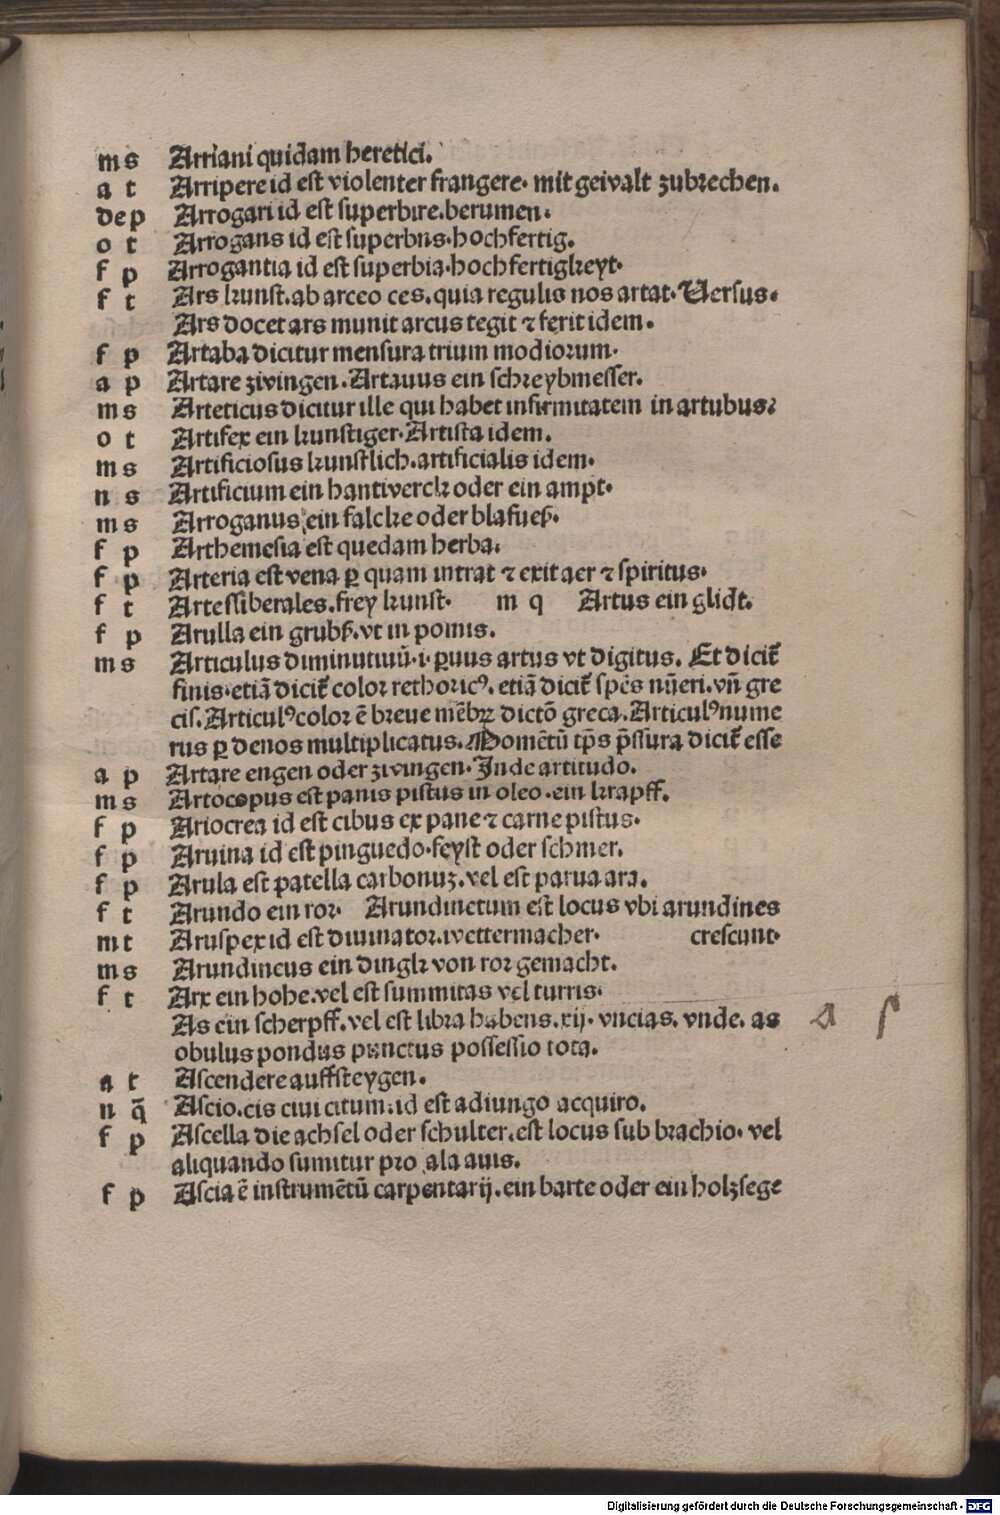 m s Arriani quidam heretici.
a t Arripere id est violenter frangere. mit geivalt zubrechen.
de p Arrogari id est superbire. berumen.
o t Arrogans id est superbns. hochfertig.
f p Arrogantia id est superbia. hochfertigkeyt.
f t Ars kunst. ab arceo ces. quia regulis nos artat. Versus.
Ars docet ars munit arcus tegit ⁊ ferit idem.
f p Artaba dicitur mensura trium modiorum.
a p Artare zivingen. Artauus ein schreybmesser.
m s Arteticus dicitur ille qui habet infirmitatem in artubus.
o t Artifex ein kunstiger. Artista idem.
m s Artificiosus kunstlich. artificialis idem.
n s Artificium ein hantiverck oder ein ampt.
m s Arroganus ein falcke oder blafueß.
f p Arthemesia est quedam herba.
f p Arteria est vena ꝑ quam intrat ⁊ exit aer ⁊ spiritus.
f t Artes liberales. frey kunst. m q Artus ein glidt.
f p Arulla ein grubß. vt in pomis.
m s Articulus diminutiuū. i. ꝑuus artus vt digitus. Et dicit̄
finis. etiā dicit̄ color rethoricꝰ. etiā dicit̄ spēs nūeri. vñ gre
cis. Articulꝰ color ē breue mēbꝝ dictō greca. Articulꝰ nume
rus ꝑ denos multiplicatus. Momētū tp̄s p̄ssura dicit̄ esse
a p Artare engen oder zivingen. Inde artitudo.
m s Artocopus est panis pistus in oleo. ein krapff.
f p Ariocrea id est cibus ex pane ⁊ carne pistus.
f p Aruina id est pinguedo. feyst oder schmer.
f p Arula est patella carbonuꝫ. vel est parua ara.
f t Arundo ein ror. Arundinetum est locus vbi arundines
m t Aruspex id est diuinator. ivettermacher. crescunt.
m s Arundineus ein dingk von ror gemacht.
f t Arx ein hohe. vel est summitas vel turris.
As ein scherpff. vel est libra habens. xij. vncias. vnde. as a s
obulus pondus punctus possessio tota.
a t Ascendere auffsteygen.
n q̄ Ascio. cis ciui citum. id est adiungo acquiro.
f p Ascella die achsel oder schulter. est locus sub brachio. vel
aliquando sumitur pro ala auis.
f p Ascia ē instrumētū carpentarij. ein barte oder ein holzsege
Digitalisierung gefördert durch die Deutsche Forschungsgemeinschaft - DFG